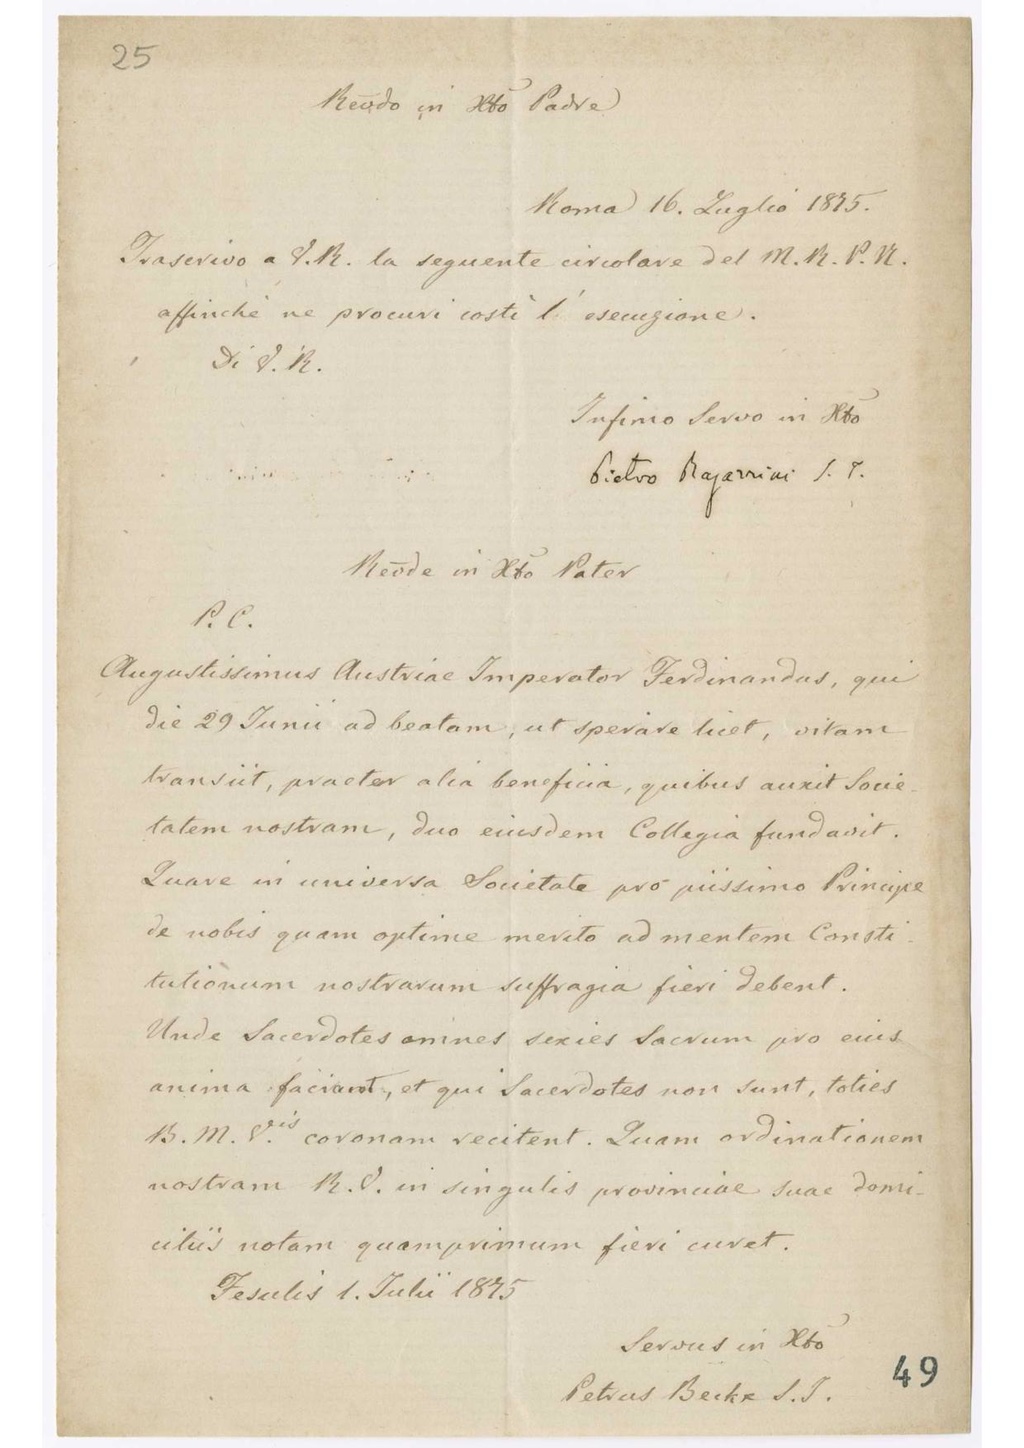 25
Revdo in Xto Padre
Roma 16. Luglio 1875.
Trascrivo a V.R. la seguente circolare del M.R.P.N.
affinchè ne procuri costì l'esecuzione.
Di V.R.
Infimo Servo in Xto
Pietro Ragazzini S.J.
Revde in Xto Pater
P.C.
Augustissimus Austriae Imperator Ferdinandus, qui
die 29 Junii ad beatam, ut sperare licet, vitam
transiit, praeter alia beneficia, quibus auxit Socie-
tatem nostram, duo eiusdem Collegia fundavit.
Quare in universa Societate pro piissimo Principe
de nobis quam optime merito ad mentem Consti-
tutionum nostrarum suffragia fieri debent.
Unde Sacerdotes omnes sexies Sacrum pro eius
anima faciant, et qui Sacerdotes non sunt, toties
B.M.V.is coronam recitent. Quam ordinationem
nostram R.V. in singulis provinciae suae domi-
ciliis notam quamprimum fieri curet.
Fesulis 1. Julii 1875
Servus in Xto
Petrus Beckx S.J.
49